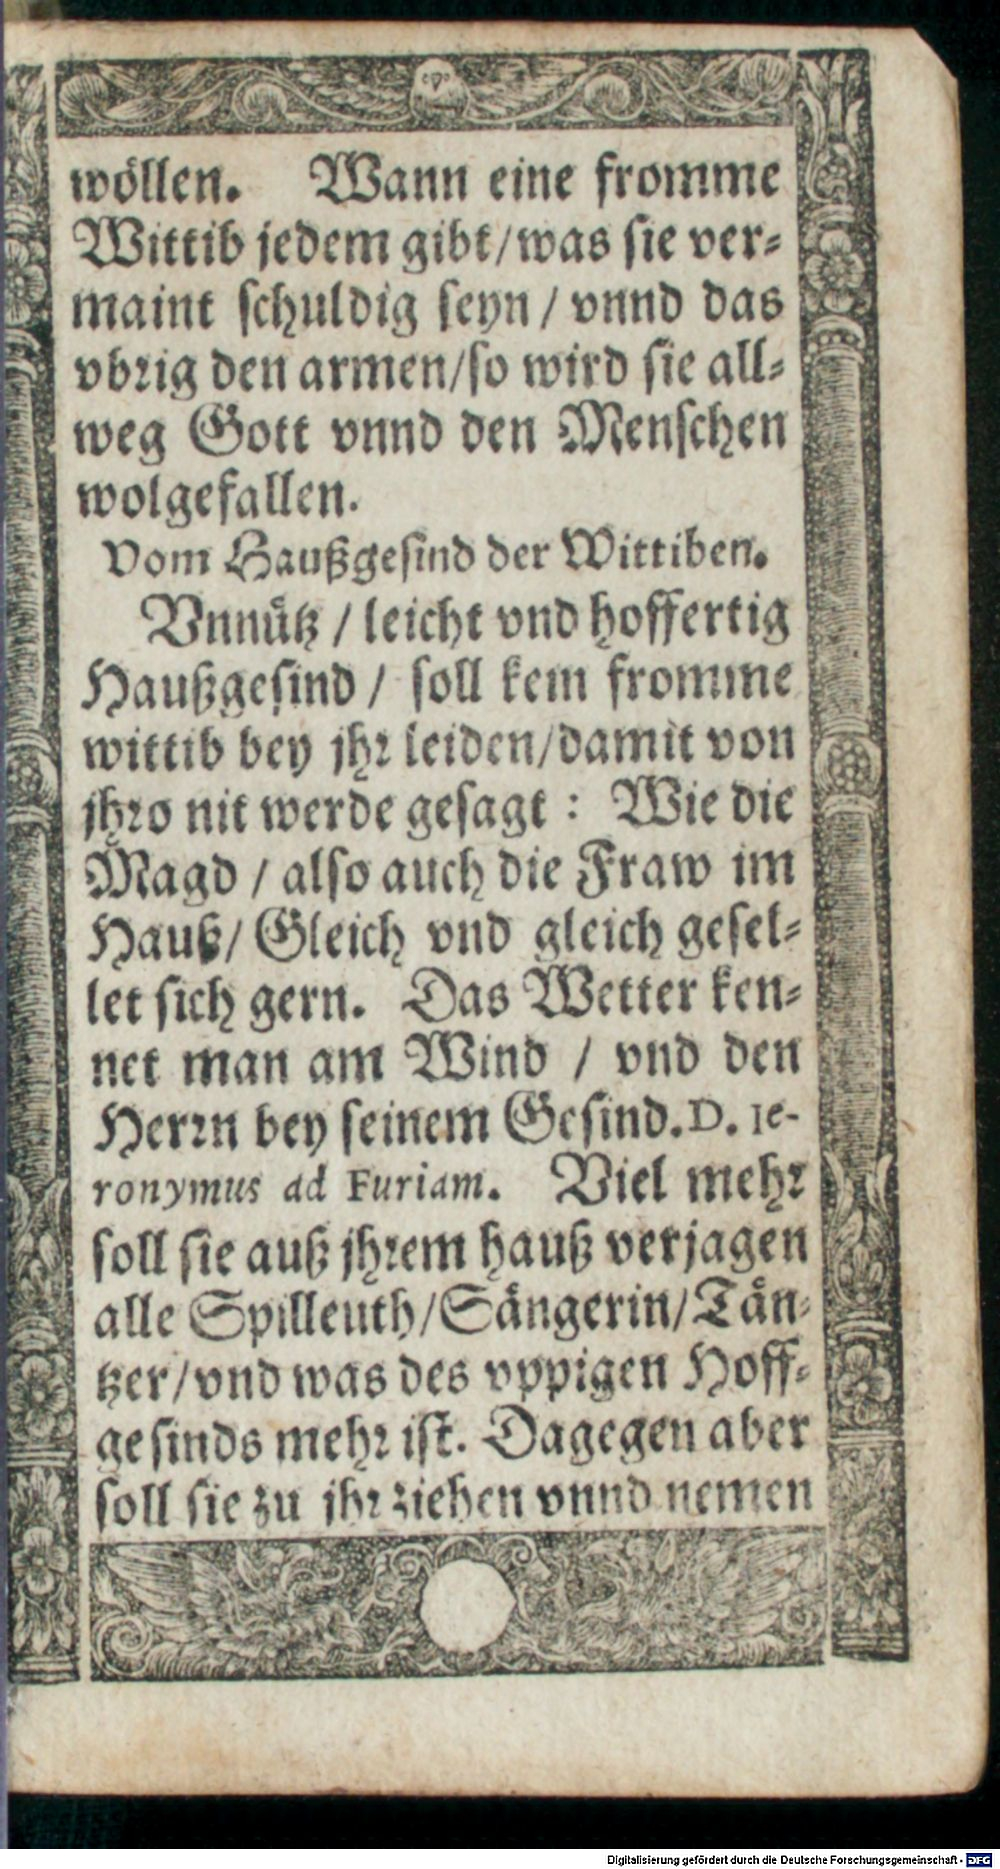 wöllen. Wann eine fromme
Wittib jedem gibt/was sie ver-
maint schuldig seyn / vnnd das
vbrig den armen/so wird sie all-
weg Gott vnnd den Menschen
wolgefallen.
Vom Haußgesind der Wittiben.
Vnnütz / leicht vnd hoffertig
Haußgesind / soll kein fromme
wittib bey jhr leiden/damit von
jhro nit werde gesagt : Wie die
Magd / also auch die Fraw im
Hauß/ Gleich vnd gleich gesel-
let sich gern. Das Wetter ken-
net man am Wind / vnd den
Herrn bey seinem Gesind. D. Ie-
ronymus ad Furiam. Viel mehr
soll sie auß jhrem hauß verjagen
alle Spilleuth/Sängerin/Tän-
tzer/vnd was des vppigen Hoff-
gesinds mehr ist. Dagegen aber
soll sie zu jhr ziehen vnnd nemen
Digitalisierung gefördert durch die Deutsche Forschungsgemeinschaft - DFG